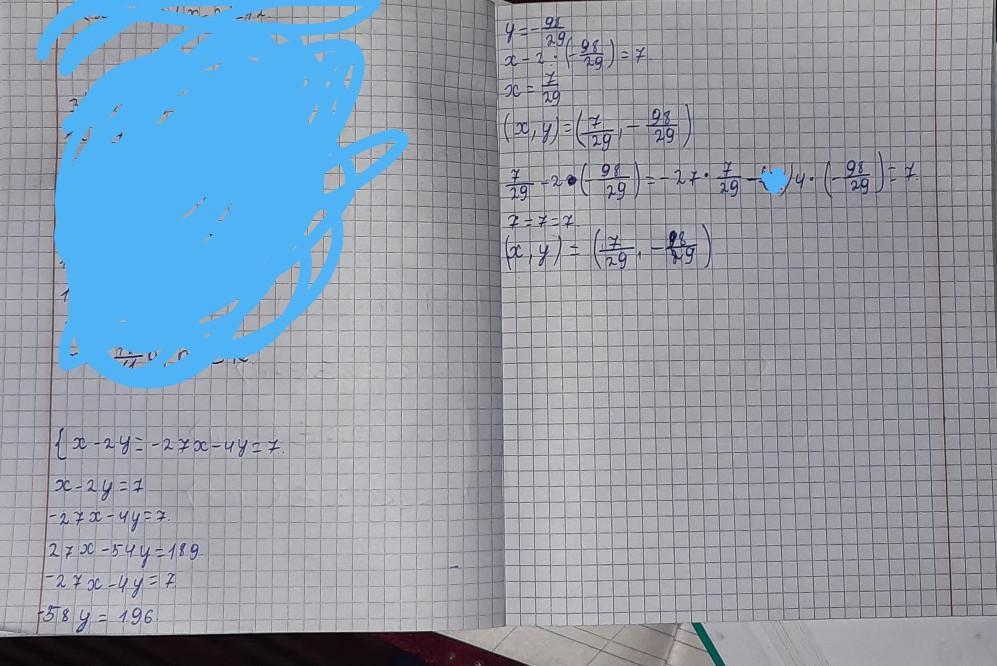 { x - 2y = -27x - 4y = 7.
x - 2y = 7
-27x - 4y = 7.
27x - 54y = 189
-27x - 4y = 7
-58y = 196.
y = -98/29
x - 2 · (-98/29) = 7
x = 7/29
(x, y) = (7/29, -98/29)
7/29 - 2 · (-98/29) = -27 · 7/29 - 4 · (-98/29) = 7.
7 = 7 = 7
(x, y) = (7/29, -98/29)